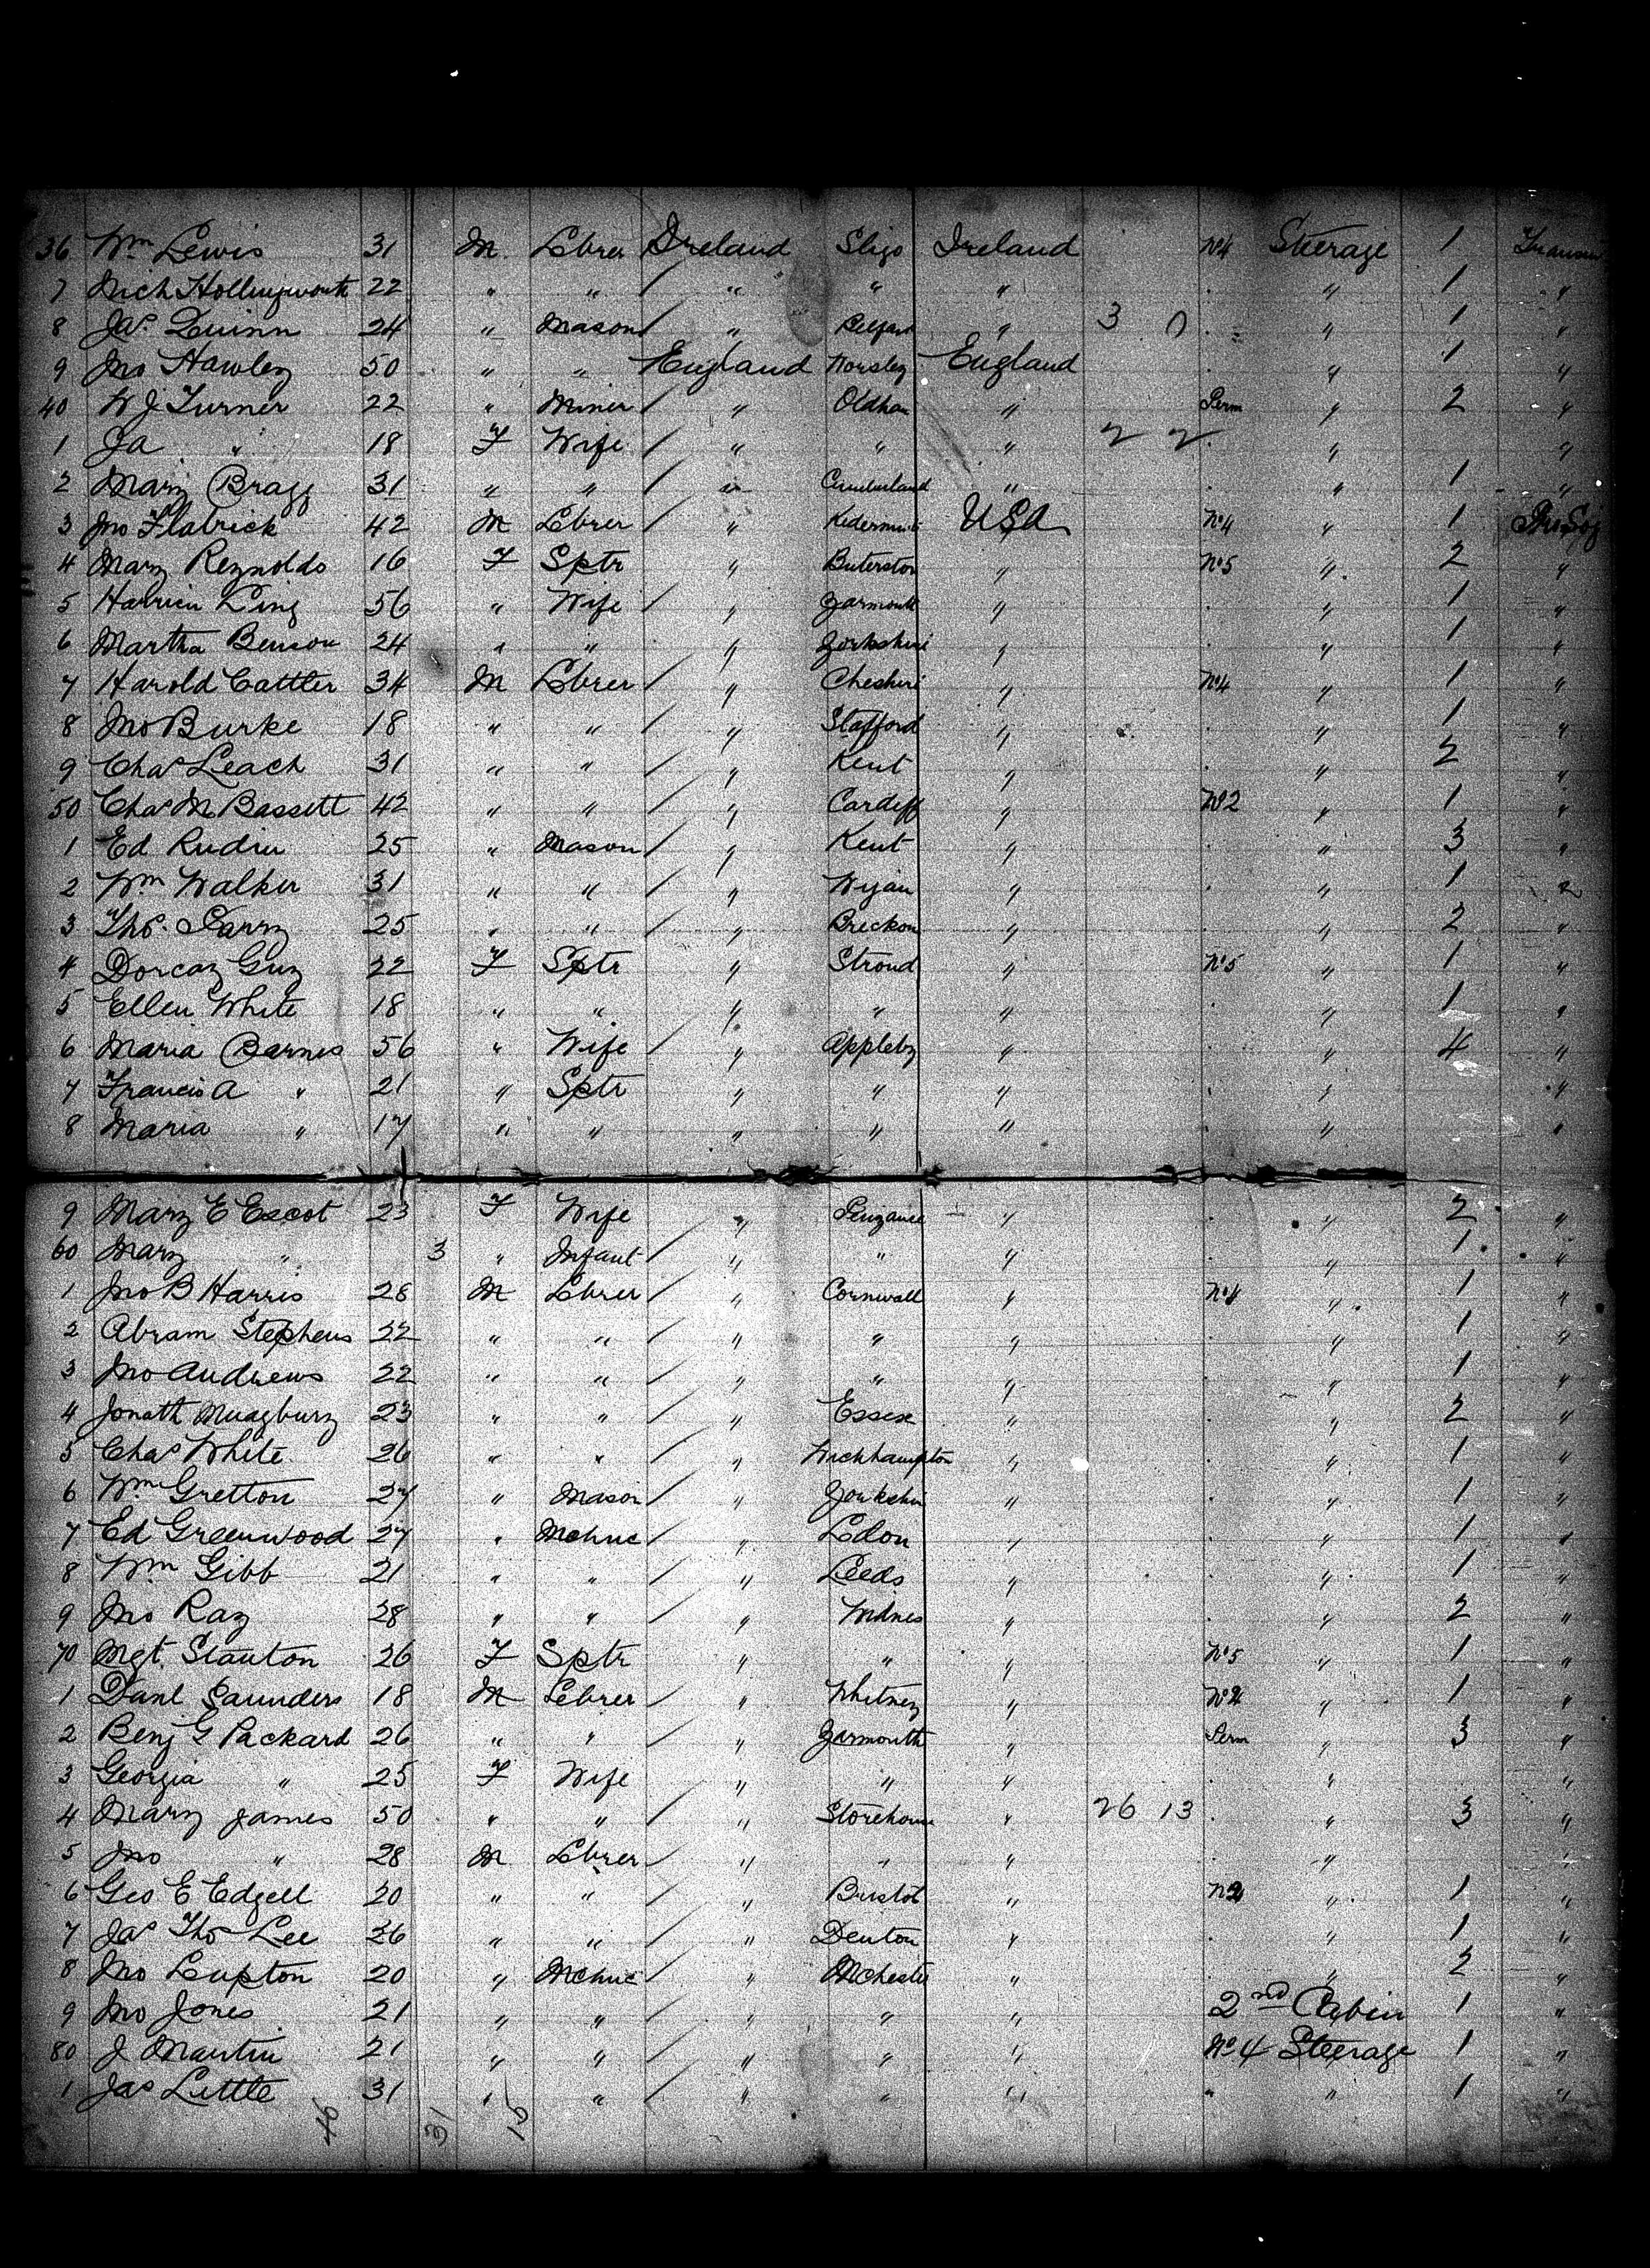 36 Wm Lewis 31 M Lbrer Ireland Sligo Ireland No4 Steerage 1
7 Mich Hollingworth 22 " " " " " " 1 "
8 Jas Quinn 24 " Mason " Belfast " 3 0 " 1 "
9 Jno Hawley 50 " " England Worsley England " 1 "
40 W J Turner 22 " Miner " Oldham " Perm " 2 "
1 Ja " 18 F Wife " " " 2 2 " "
2 Mary Bragg 31 " " " Cumberland " " 1 "
3 Jno Flatrick 42 M Lbrer " USA No4 " 1
4 Mary Reynolds 16 F Sptr " Buterston " No5 " 2 "
5 Ling 56 " Wife " Yarmouth " " 1 "
6 Martha Benson 24 " " " Yorkshire " " 1 "
7 Harold Cattler 34 M Lbrer " Cheshire " No4 " 1 "
8 Jno Burke 18 " " " Stafford " " 1 "
9 Chas Leach 31 " " " Kent " " 2 "
50 Chas M Bassett 42 " " " Cardiff " No2 " 1 "
1 Ed Rudin 25 " Mason " Kent " " 3 "
2 Wm Walker 31 " " " Wigan " " 1 "
3 Thos. Parry 25 " " " Breckon " " 2 "
4 Dorcas Guy 22 F Sptr " Stroud " No5 " 1 "
5 Ellen White 18 " " " " " " 1 "
6 Maria Barnes 56 " Wife " Appleby " " 4 "
7 Francis A " 21 " Sptr " " " " "
8 Maria " 17 " " " " " " "
9 Mary E Escot 23 F Wife " Penzance " " 2 "
60 Mary " 3 " Infant " " " " 1 "
1 Jno B Harris 28 M Lbrer " Cornwall " No4 " 1 "
2 Abram Stephens 22 " " " " " " 1 "
3 Jno Andrews 22 " " " " " " 1 "
4 Jonath 23 " " " Essex " " 2 "
5 Chas White 26 " " " Wickhampton " " 1 "
6 Wm Gretton 27 " Mason " Yorkshir " " 1 "
7 Ed Greenwood 27 " Mchnc " Ldon " " 1 "
8 Wm Gibb 21 " " " Leeds " " 1 "
9 Jno Ray 28 " " " Widnes " " 2 "
70 Mgt. Stanton 26 F Sptr " " " No5 " 1 "
1 Danl Saunders 18 M Lebrer " Whitney " " 1 "
2 Benj G Packard 26 " " " Yarmouth " Perm " 3 "
3 Georgia " 25 F Wife " " " " "
4 Mary James 50 " " " Storehouse " 26 13 " 3 "
5 Jno " 28 M Lbrer " " " " "
6 Geo E Edgell 20 " " " Bristol " " 1 "
7 Jas Thos Lee 26 " " " Denton " " 1 "
8 Jno Lupton 20 " Mchnc " Mchester " " 2 "
9 Jno Jones 21 " " " " " 2nd Cabin 1 "
80 J Martin 21 " " " " " No 4 Steerage 1 "
1 Jas Little 31 " " " " " " " 1 "
46 31 15